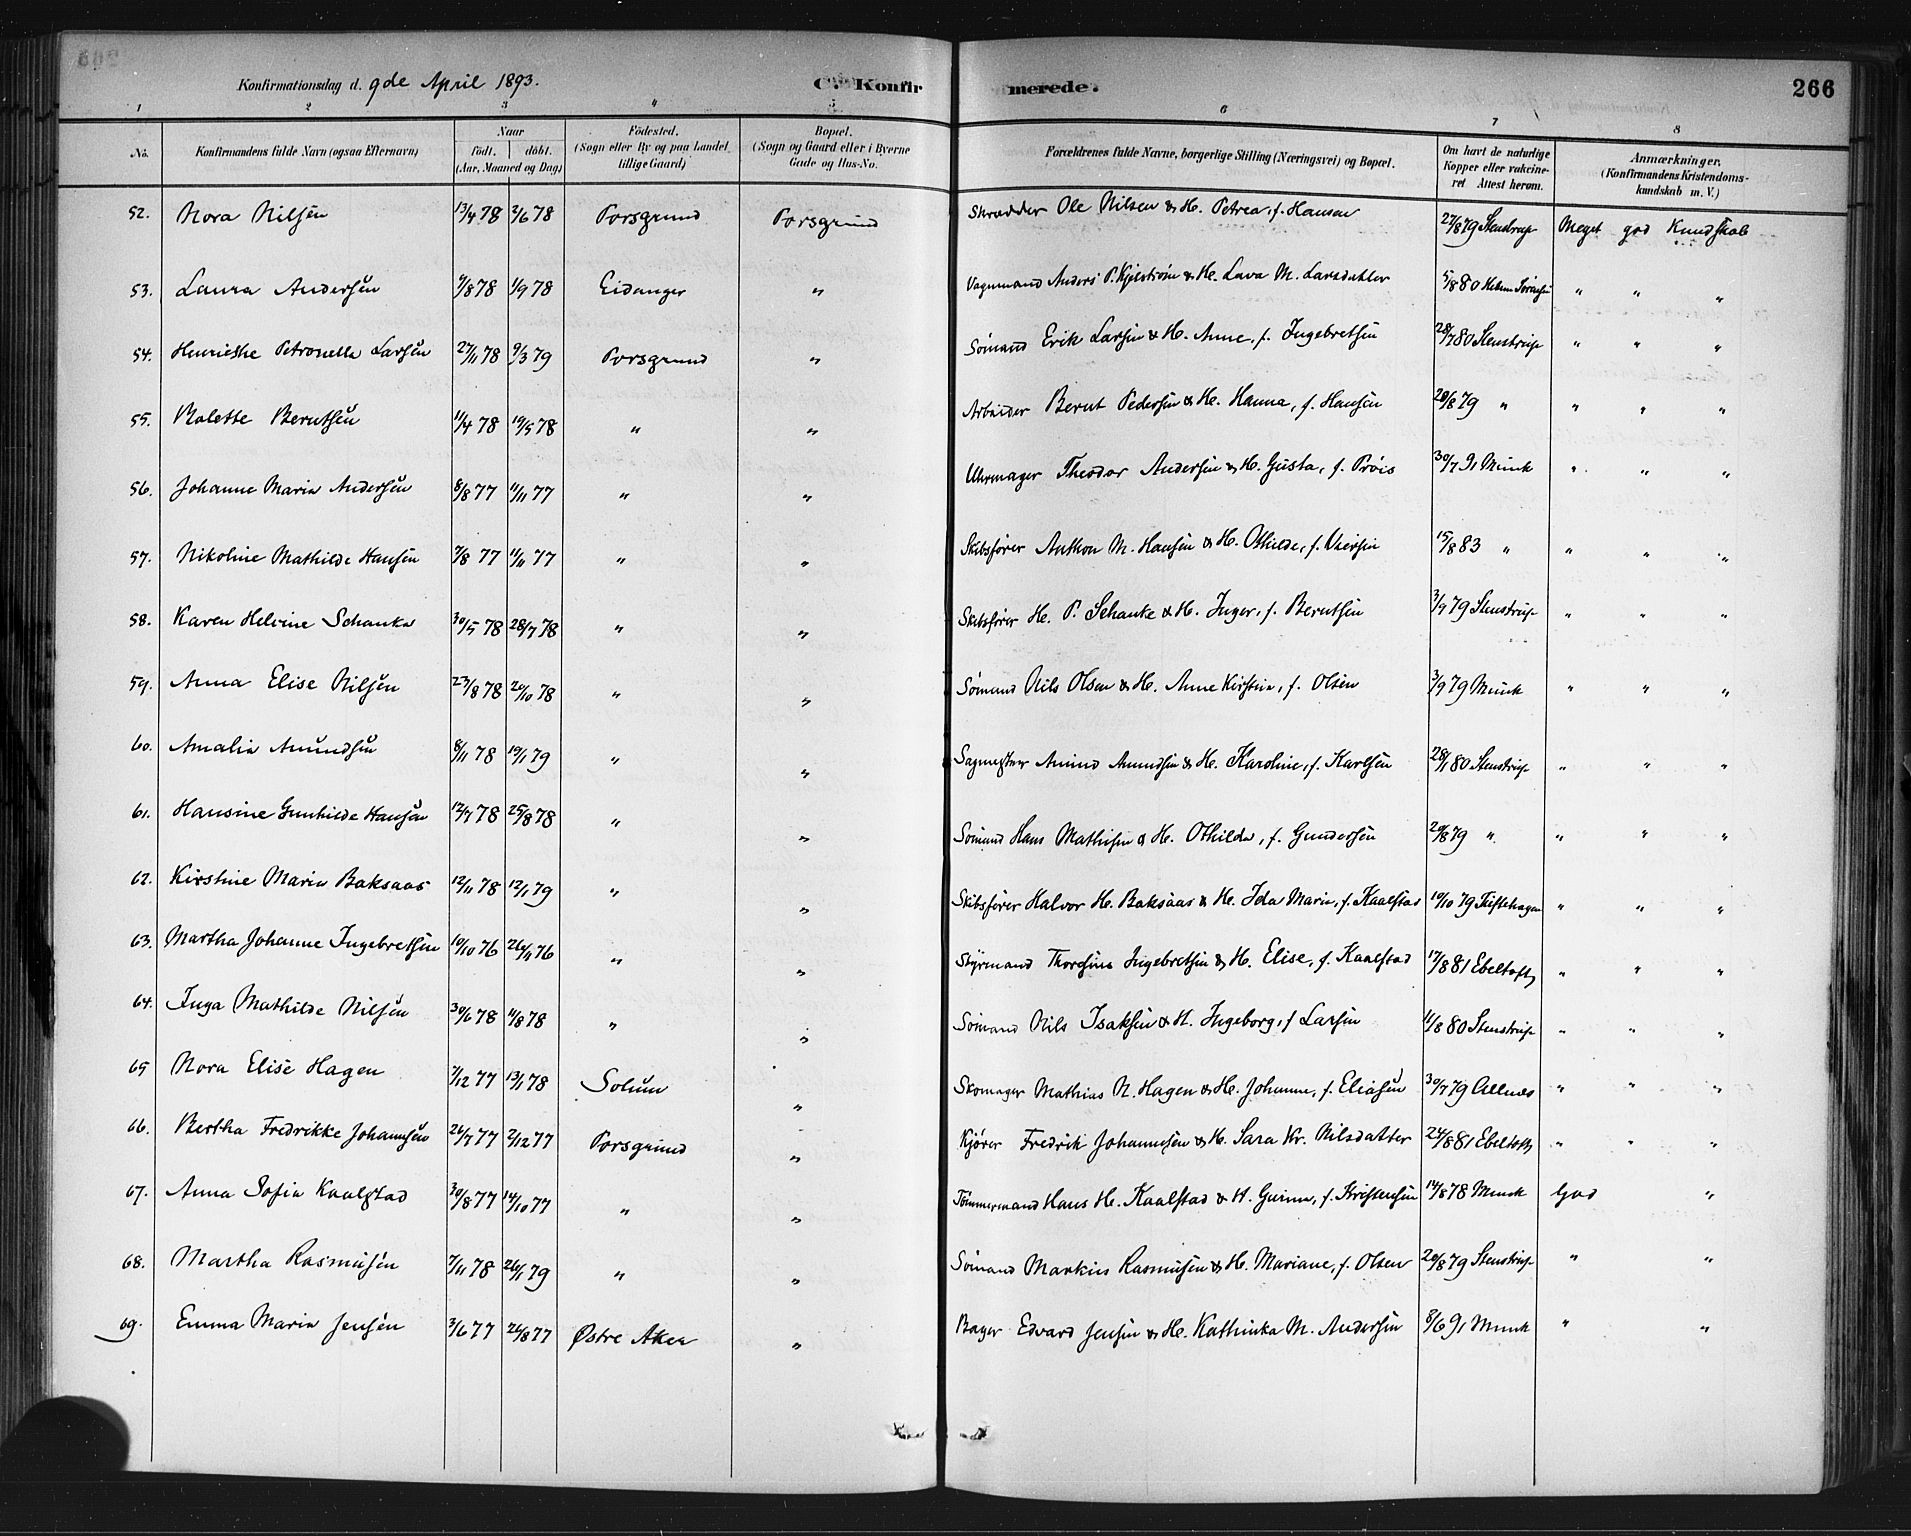 Konfirmationsdag d. 9de April 1893. C. Konfir merede. 266
1 2 3 4 5 6 7 8
No. Konfirmandens fulde Navn (ogsaa Efternavn) Naar Födt. döbt. (Aar, Maaned og Dag) Födested. (Sogn eller By og paa Landet tillige Gaard) Bopæl. (Sogn og Gaard eller i Byerne Gade og Hus-No. Forældrenes fulde Navne, borgerlige Stilling (Næringsvei) og Bopæl. Om havt de naturlige Kopper eller vakcineret. Attest herom. Anmærkninger, (Konfirmandens Kristendomskundskab m. V.)
52. Nora Nilsen 13/4 78 2/6 78 Porsgrund Porsgrund Skrædder Ole Nilsen & H. Petrea, f. Hansen 27/8 79 Stenstrup Meget god Kundskab
53. Laura Andersen 9/8 78 1/9 78 Eidanger " Vognmand Anders P. Kjelstrøm & H. Lava M. Larsdatter 5/8 80 " " "
54. Henriethe Petronella Larsen 27/11 78 9/3 79 Porsgrund " Sömand Erik Larsen & H. Anne, f. Ingebretsen 28/7 80 Stenstrup " " "
55. Bolette Berntsen 11/4 78 19/5 78 " " Arbeider Bernt Pedersen & H. Hanna, f. Hansen 20/8 79 " " " "
56. Johanne Maria Andersen 8/8 77 11/11 77 " " Uhrmager Theodor Andersen & H. Gusta, f. Próis 30/7 91 Munk " " "
57. Nikoline Mathilde Hansen 7/8 77 11/11 77 " " Skibsfører Anthon M. Hansen & H. Othilde, f. 15/8 83 " " " "
58. Karen Helvine Schanke 30/5 78 28/7 78 " " Skibsfører H. P. Schanke & H. Inger, f. Berntsen 3/9 79 Stenstrup " " "
59. Anna Elise Nilsen 23/8 78 20/10 78 " " Sømand Nils Olsen & H. Anne Kirstine, f. Olsen 3/9 79 Munk " " "
60. Amalia Amundsen 8/11 78 19/1 79 " " Sagmester Amund Amundsen & H. Karoline, f. Karlsen 28/1 80 Stenstrup " " "
61. Hansine Gunhilde Hansen 12/7 78 25/8 78 " " Sømand Hans Mathisen & H. Othilda, f. Gundersen 20/8 79 " " " "
62. Kirstine Maria Baksaas 12/11 78 12/1 79 " " Skibsfører Halvor H. Baksaas & H. Ida Marie, f. Kaalstad 10/10 79 Tuftehagen " " "
63. Martha Johanne Ingebretsen 10/10 76 26/11 76 " " Styrmand Ingebretsen & H. Elise, f. Kaalstad 17/8 81 Ebeltoft " " "
64. Inga Mathilde Nilsen 30/6 78 11/8 78 " " Sømand Nils Isaksen & H. Ingeborg, f Larsen 11/8 80 Stenstrup " " "
65 Nora Elise Hagen 7/12 77 13/1 78 Solum " Skomager Mathias N. Hagen & H. Johanne, f. Eliasen 30/7 79 " " "
66. Bertha Fredrikke Johannsen 26/7 77 2/12 77 Porsgrund " Kjører Fredrik Johannesen & H. Sara Kr. Nilsdatter 24/8 81 Ebeltoft " " "
67. Anna Sofia Kaalstad 30/8 77 14/10 77 " " Tømmermand Hans H. Kaalstad & H. Gurine, f. Kristensen 14/8 78 Munk God "
68. Martha Rasmusen 7/11 78 26/1 79 " " Sømand Markus Rasmusen & H. Mariane, f. Olsen 20/8 79 Stenstrup " "
69. Emma Maria Jensen 3/6 77 26/8 77 Østre Aker " Bager Edvard Jensen & H. Kathinka M. Andersen 8/6 91 Munk " "